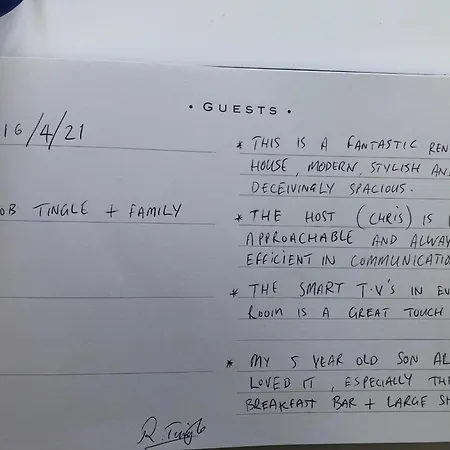 • GUESTS •
16/4/21
OB TINGLE + FAMILY
* THIS IS A FANTASTIC REN
HOUSE, MODERN, STYLISH AN
DECEIVINGLY SPACIOUS.
* THE HOST (CHRIS) IS
APPROACHABLE AND ALWAY
EFFICIENT IN COMMUNICATIO
* THE SMART T.V'S IN EV
ROOM IS A GREAT TOUCH
* MY 5 YEAR OLD SON AL
LOVED IT, ESPECIALLY THE
BREAKFAST BAR + LARGE SH
R. Tingle